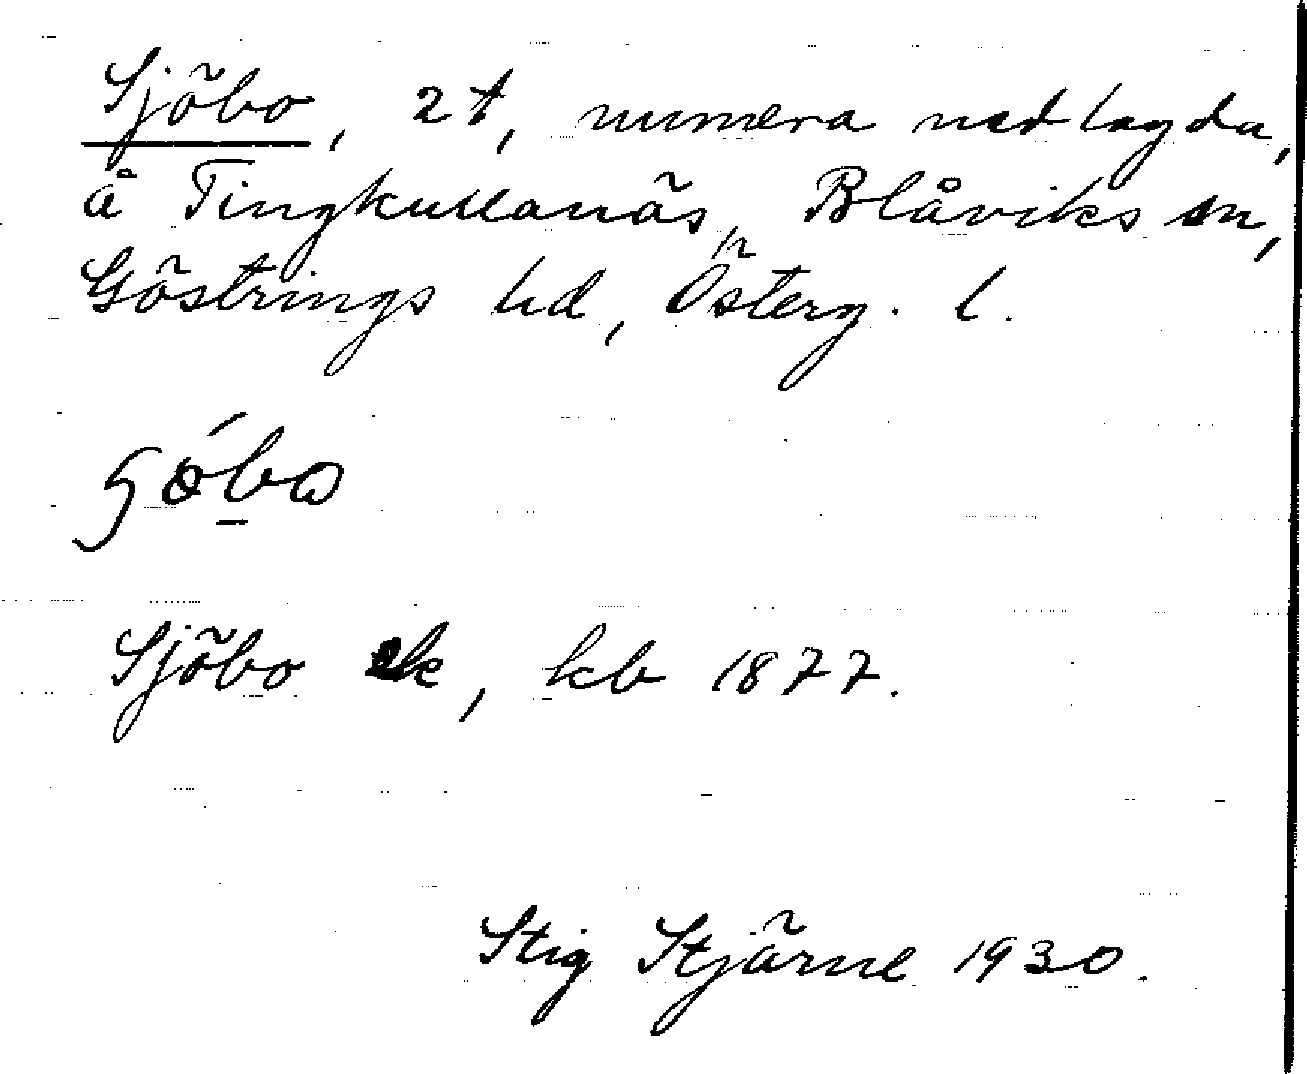 Sjöbo, 2 t, numera nedlagda,
å Tingkullanäs, Blåviks sn,
Göstrings hd, Österg. l.
Sjöbo, kb 1877.
Stig Stjärne 1930.